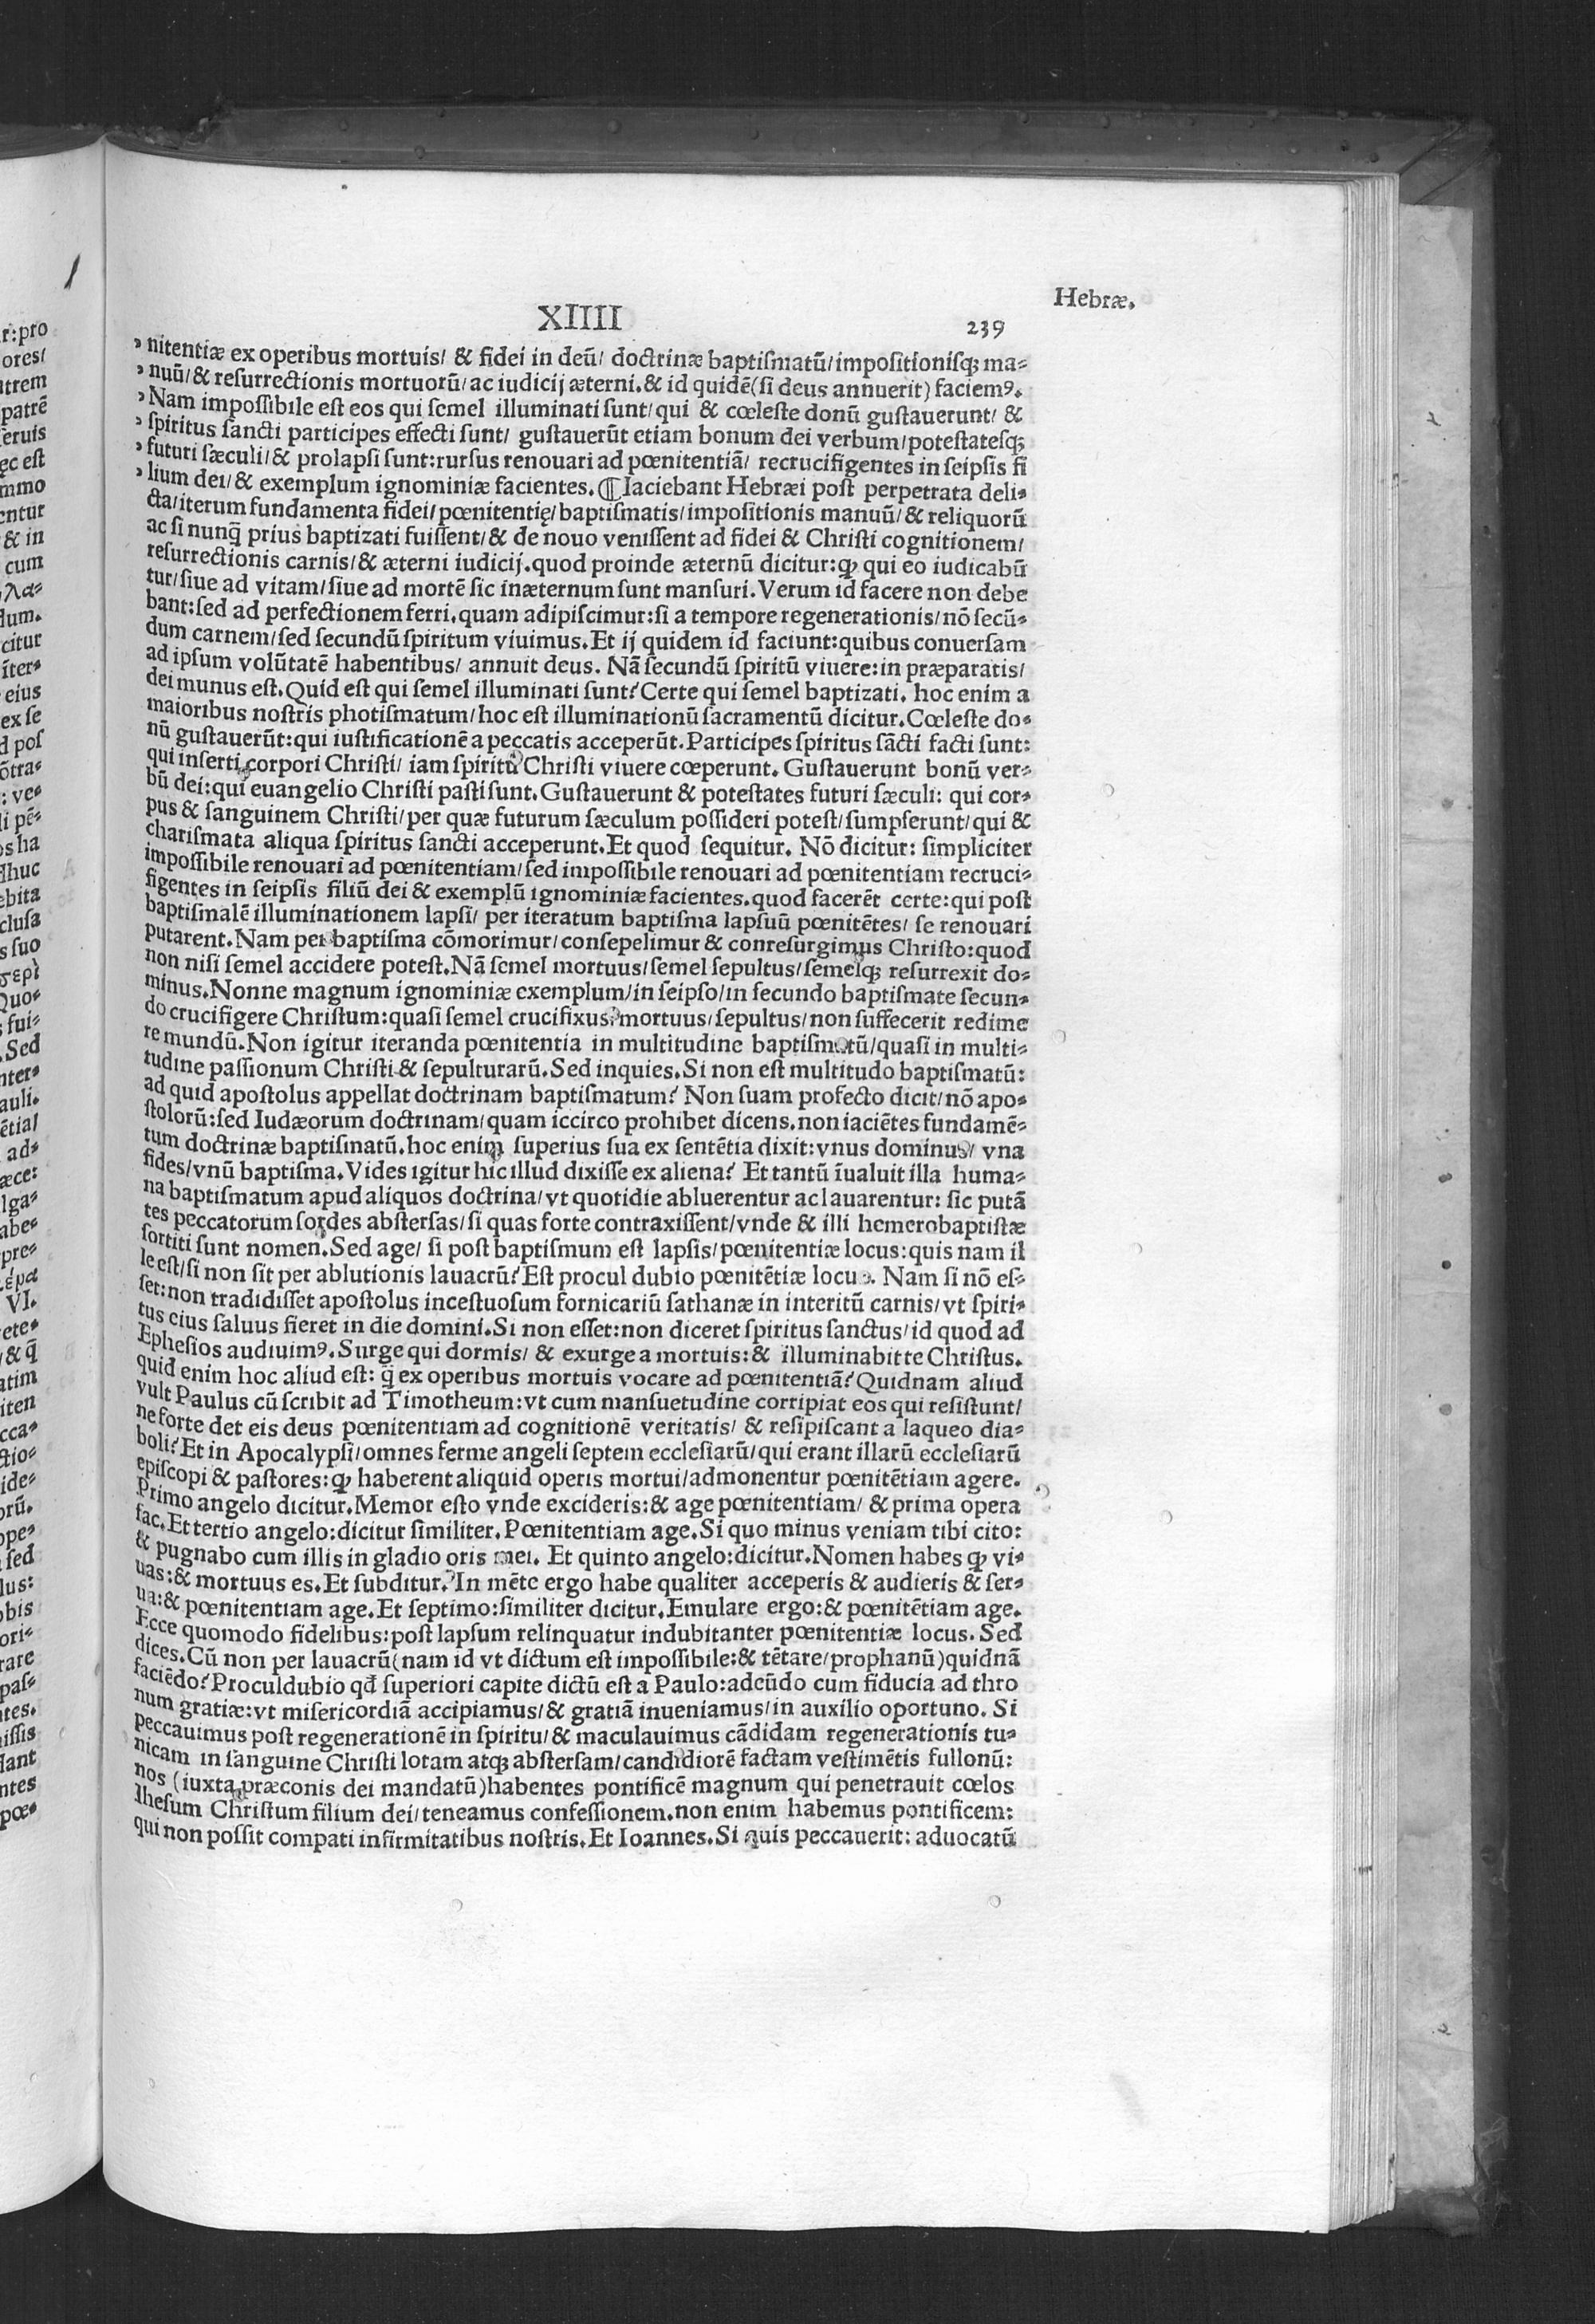 XIIII
239
Hebræ.
nitentiæ ex operibus mortuis/ & fidei in deū/ doctrinæ baptiſmatū/impoſitionisq; ma-
nuū/& reſurrectionis mortuorū/ac iudicij æterni.& id quidē(ſi deus annuerit) faciemꝰ.
Nam impoſſibile eſt eos qui ſemel illuminati ſunt/qui & cœleſte donū guſtauerunt/ &
ſpiritus ſancti participes effecti ſunt/ guſtauerūt etiam bonum dei verbum/poteſtateſq;
futuri ſæculi/& prolapſi ſunt:rurſus renouari ad pœnitentiā/ recrucifigentes in ſeipſis fi
lium dei/& exemplum ignominiæ facientes.¶Iaciebant Hebræi poſt perpetrata deli-
cta/iterum fundamenta fidei/pœnitentię/baptiſmatis/impoſitionis manuū/& reliquorū
ac ſi nunq̄ prius baptizati fuiſſent/& de nouo veniſſent ad fidei & Chriſti cognitionem/
reſurrectionis carnis/& æterni iudicij.quod proinde æternū dicitur:ꝙ qui eo iudicabū
tur/ſiue ad vitam/ſiue ad mortē ſic inæternum ſunt manſuri.Verum id facere non debe
bant:ſed ad perfectionem ferri.quam adipiſcimur:ſi a tempore regenerationis/nō ſecū-
dum carnem/ſed ſecundū ſpiritum viuimus.Et ij quidem id faciunt:quibus conuerſam
ad ipſum volūtatē habentibus/ annuit deus. Nā ſecundū ſpiritū viuere:in præparatis/
dei munus eſt.Quid eſt qui ſemel illuminati ſunt? Certe qui ſemel baptizati. hoc enim a
maioribus noſtris photiſmatum/hoc eſt illuminationū ſacramentū dicitur.Cœleſte do-
nū guſtauerūt:qui iuſtificationē a peccatis acceperūt.Participes ſpiritus ſācti facti ſunt:
qui inſerti corpori Chriſti/ iam ſpiritu Chriſti viuere cœperunt. Guſtauerunt bonū ver-
bū dei:qui euangelio Chriſti paſti ſunt.Guſtauerunt & poteſtates futuri ſæculi: qui cor-
pus & ſanguinem Chriſti/per quæ futurum ſæculum poſſideri poteſt/ſumpſerunt/qui &
chariſmata aliqua ſpiritus ſancti acceperunt.Et quod ſequitur. Nō dicitur: ſimpliciter
impoſſibile renouari ad pœnitentiam/ſed impoſſibile renouari ad pœnitentiam recruci-
figentes in ſeipſis filiū dei & exemplū ignominiæ facientes.quod facerēt certe:qui poſt
baptiſmalē illuminationem lapſi/ per iteratum baptiſma lapſuū pœnitētes/ ſe renouari
putarent.Nam per baptiſma cōmorimur/conſepelimur & conreſurgimus Chriſto:quod
non niſi ſemel accidere poteſt.Nā ſemel mortuus/ſemel ſepultus/ſemelq; reſurrexit do-
minus.Nonne magnum ignominiæ exemplum/in ſeipſo/in ſecundo baptiſmate ſecun-
do crucifigere Chriſtum:quaſi ſemel crucifixus/mortuus/ſepultus/non ſuffecerit redime
re mundū.Non igitur iteranda pœnitentia in multitudine baptiſmatū/quaſi in multi-
tudine paſſionum Chriſti & ſepulturarū.Sed inquies.Si non eſt multitudo baptiſmatū:
ad quid apoſtolus appellat doctrinam baptiſmatum? Non ſuam profecto dicit/nō apo-
ſtolorū:ſed Iudæorum doctrinam/quam iccirco prohibet dicens.non iaciētes fundamē-
tum doctrinæ baptiſmatū.hoc enim ſuperius ſua ex ſentētia dixit:vnus dominus/ vna
fides/vnū baptiſma.Vides igitur hic illud dixiſſe ex aliena? Et tantū īualuit illa huma-
na baptiſmatum apud aliquos doctrina/vt quotidie abluerentur ac lauarentur: ſic putā
tes peccatorum ſordes abſterſas/ſi quas forte contraxiſſent/vnde & illi hemerobaptiſtæ
ſortiti ſunt nomen.Sed age/ ſi poſt baptiſmum eſt lapſis/pœnitentiæ locus:quis nam il
le eſt/ſi non ſit per ablutionis lauacrū? Eſt procul dubio pœnitētiæ locus. Nam ſi nō eſ-
ſet:non tradidiſſet apoſtolus inceſtuoſum fornicariū ſathanæ in interitū carnis/vt ſpiri-
tus eius ſaluus fieret in die domini.Si non eſſet:non diceret ſpiritus ſanctus/id quod ad
Epheſios audiuimꝰ.Surge qui dormis/ & exurge a mortuis:& illuminabit te Chriſtus.
quid enim hoc aliud eſt: q̄ ex operibus mortuis vocare ad pœnitentiā? Quidnam aliud
vult Paulus cū ſcribit ad Timotheum:vt cum manſuetudine corripiat eos qui reſiſtunt/
ne forte det eis deus pœnitentiam ad cognitionē veritatis/ & reſipiſcant a laqueo dia-
boli? Et in Apocalypſi/omnes ferme angeli ſeptem eccleſiarū/qui erant illarū eccleſiarū
epiſcopi & paſtores:ꝙ haberent aliquid operis mortui/admonentur pœnitētiam agere.
Primo angelo dicitur.Memor eſto vnde excideris:& age pœnitentiam/ & prima opera
fac.Et tertio angelo:dicitur ſimiliter.Pœnitentiam age.Si quo minus veniam tibi cito:
& pugnabo cum illis in gladio oris mei. Et quinto angelo:dicitur.Nomen habes ꝙ vi-
uas:& mortuus es.Et ſubditur.In mēte ergo habe qualiter acceperis & audieris & ſer-
ua:& pœnitentiam age.Et ſeptimo:ſimiliter dicitur.Emulare ergo:& pœnitētiam age.
Ecce quomodo fidelibus:poſt lapſum relinquatur indubitanter pœnitentiæ locus.Sed
dices.Cū non per lauacrū(nam id vt dictum eſt impoſſibile:& tētare/prophanū)quidnā
faciēdo? Proculdubio qđ ſuperiori capite dictū eſt a Paulo:adeūdo cum fiducia ad thro
num gratiæ:vt miſericordiā accipiamus/& gratiā inueniamus/in auxilio oportuno. Si
peccauimus poſt regenerationē in ſpiritu/& maculauimus cādidam regenerationis tu-
nicam in ſanguine Chriſti lotam atq; abſterſam/candidiorē factam veſtimētis fullonū:
nos (iuxta præconis dei mandatū)habentes pontificē magnum qui penetrauit cœlos
Iheſum Chriſtum filium dei/teneamus confeſſionem.non enim habemus pontificem:
qui non poſſit compati infirmitatibus noſtris.Et Ioannes.Si quis peccauerit: aduocatū